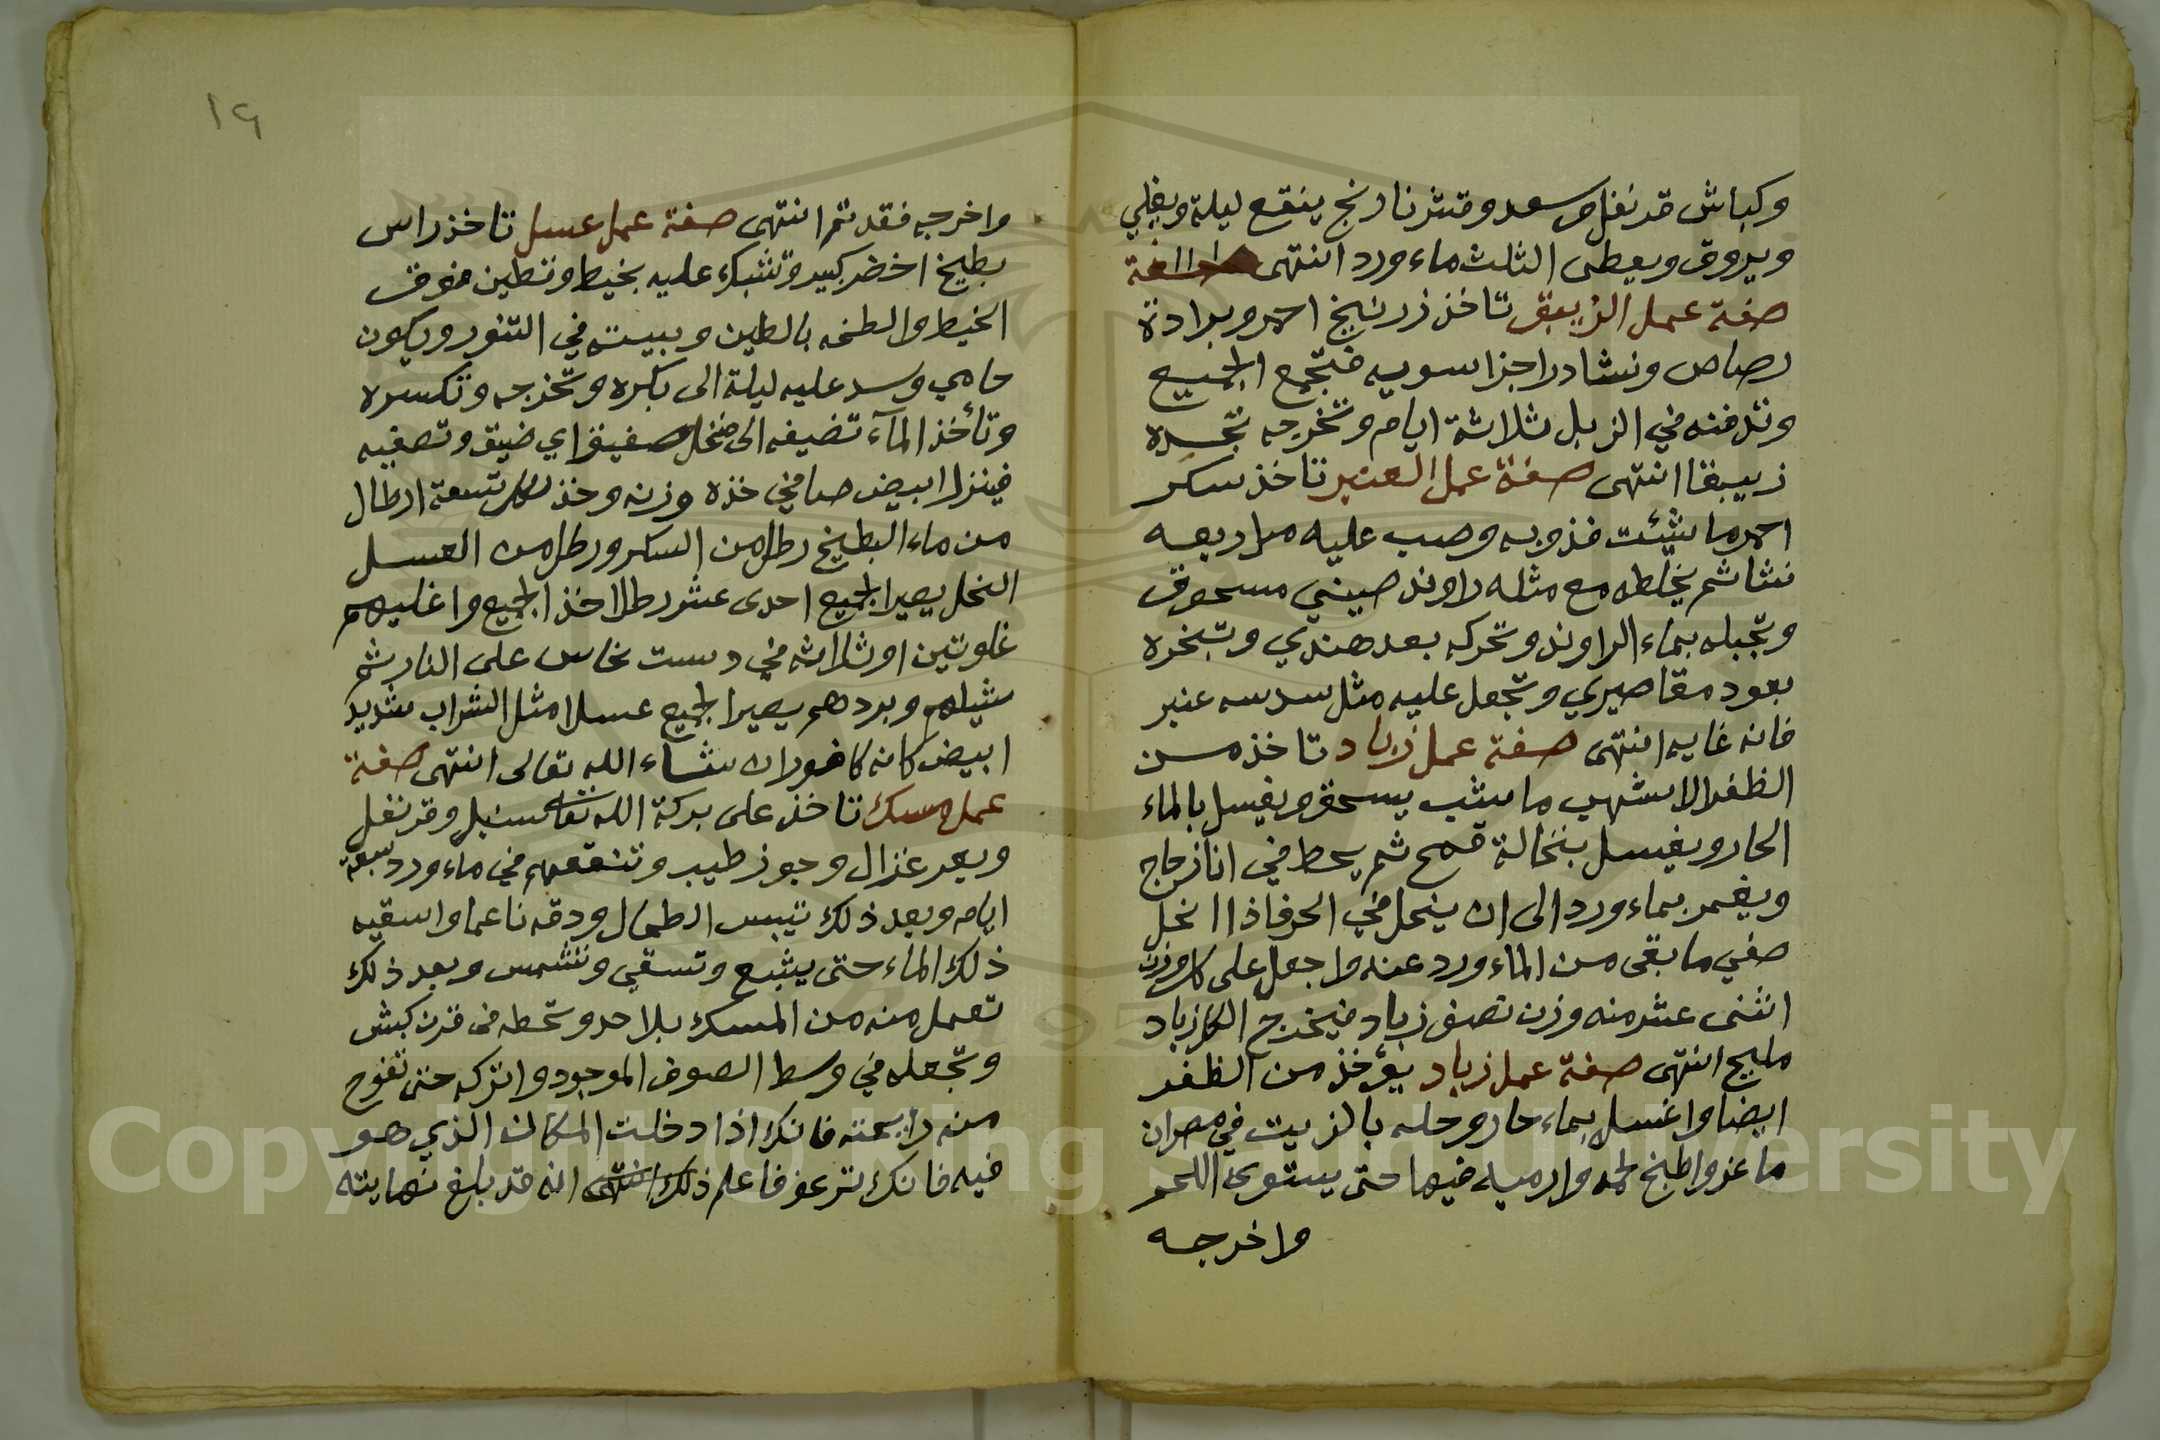 وكباش قرنفل وسعد وقشر نارنج ينقع ليلة ويغلي
ويروق ويعطى الثلث ماء ورد انتهى
صفة عمل الزيبق تاخذ زرنيخ احمر وبرادة
رصاص ونشادر اجزا سويه فتجمع الجميع
وتدفنه في الزبل ثلاثة ايام وتخرجه تجده
زيبقا انتهى صفة عمل العنبر تاخذ سكر
احمر ما شئت فذوبه وصب عليه مرار يعه
نشا ثم يخلطه مع مثله راوند صيني مسحوق
وتجبله بماء الراوند وتحركه بعد هندي وتبخره
بعود مقاصيري وتجعل عليه مثل سدسه عنبر
فانه غايه انتهى صفة عمل زباد تاخذ من
الظفر الاشهب ما شئت يسحق ويغسل بالماء
الحار ويغسل بنخالة قمح ثم يحط في انا زجاج
ويغمر بماء ورد الى ان ينحل في الحر فاذا انحل
صفي ما بقى من الماء ورد عنه واجعل على كل وزن
اثنى عشر منه وزن نصف زباد فيخرج الكل زباد
مليح انتهى صفة عمل زباد يؤخذ من الظفر
ايضا واغسله بماء حار وحله بالزيت في مصران
ماعز واطبخ لحمه وارميه فيها حتى يستوى اللحم
واخرجه
١٦
واخرجه فقد تم انتهى صفة عمل عسل تاخذ راس
بطيخ اخضر كبير وتشبك عليه بخيط وتطين فوق
الخيط والطخه بالطين وبيته في التنور ويكون
حامي وسد عليه ليلة الى بكره وتخرجه وتكسره
وتأخذ المآء تضيفه الى منخل صفيق اي ضيق وتصفيه
فينزل ابيض صافي خذه وزنه وخذ لكل تسعة ارطال
من ماء البطيخ رطل من السكر ورطل من العسل
النحل يصير الجميع احدى عشر رطلا خذ الجميع واغليهم
غلوتين او ثلاثه في دست نحاس على النار ثم
شيلهم وبردهم يصير الجميع عسلا مثل الشراب شديد
ابيض كانه كافور ان شاء الله تعالى انتهى صفة
عمل مسك تاخذ على بركة الله تعالى سنبل وقرنفل
وبعر غزال وجوز طيب وتنقعهم في ماء ورد سبعة
ايام وبعد ذلك تيبس الطحال ودقه ناعما واسقيه
ذلك الماء حتى يشبع وتسقي وتشمس وبعد ذلك
تعمل منه من المسك بلا حد وتحطه في قرن كبش
وتجعله في وسط الصوف الموجود واتركه حتى تفوح
منه رايحته فانك اذا دخلت المكان الذي هو
فيه فانك ترعف فاعلم ذلك انه قد بلغ نهايته
Copyright © King Saud University